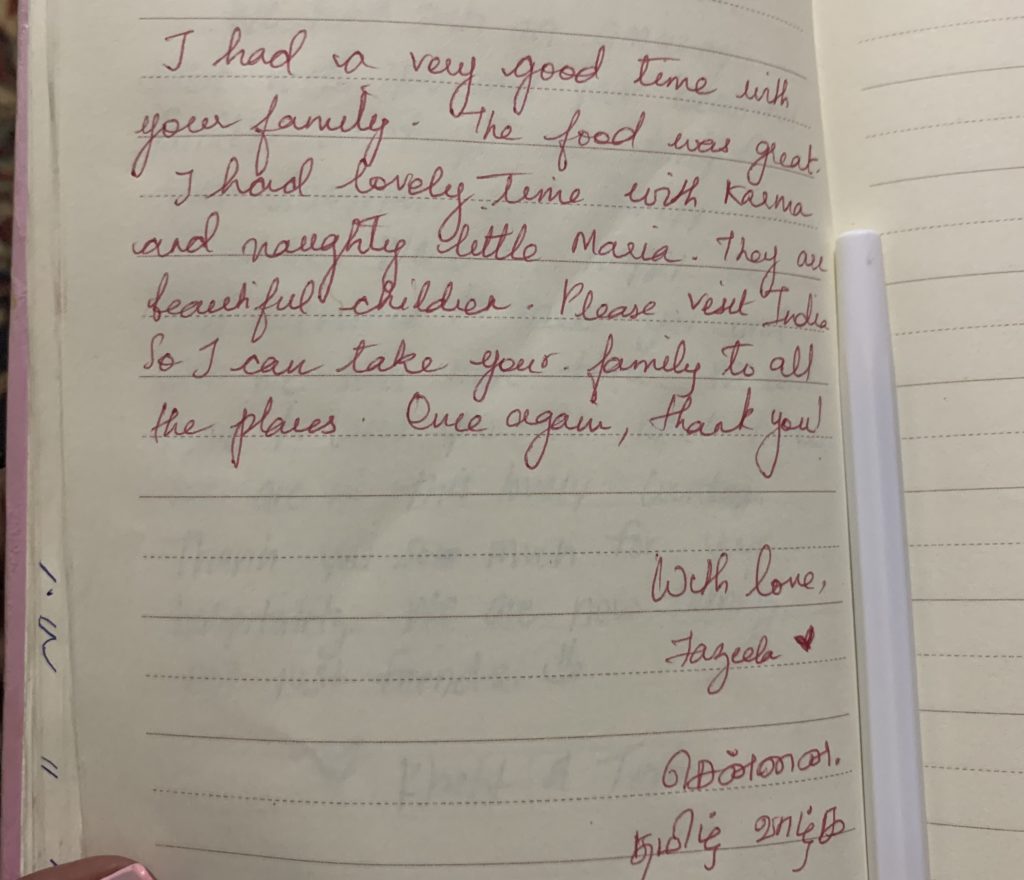 I had a very good time with
your family. The food was great.
I had lovely time with Karma
and naughty little Maria. They are
beautiful children. Please visit India
So I can take your family to all
the places. Once again, thank you
With love,
Fazeela ♥
சென்னை.
தமிழ் வாழ்க